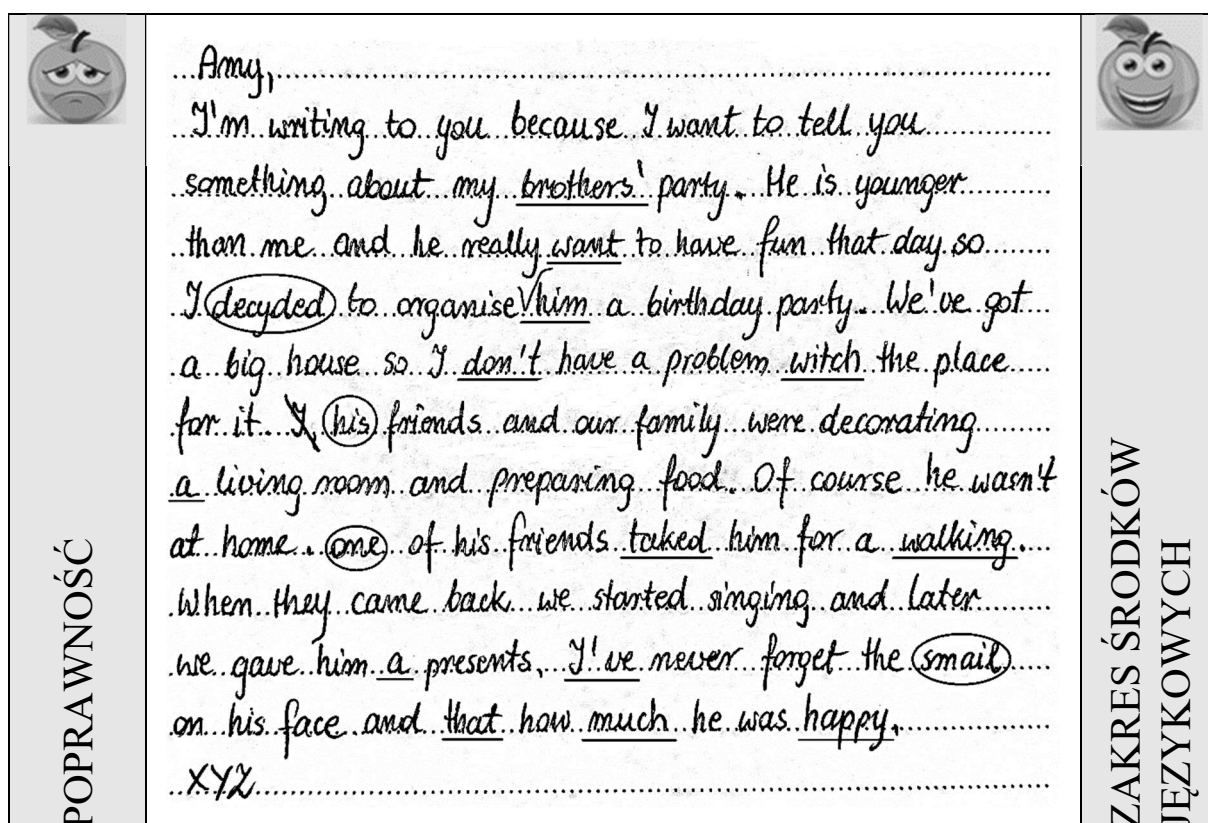 Amy,
I'm writing to you because I want to tell you
something about my brothers' party. He is younger
than me and he really want to have fun that day so
I decyded to organise him a birthday party. We've got
a big house so I don't have a problem witch the place
for it. I, his friends and our family were decorating
a living room and preparing food. Of course he wasn't
at home. one of his friends taked him for a walking.
When they came back we started singing and later
we gave him a presents. I've never forget the smail
on his face and that how much he was happy.
XYZ
POPRAWNOŚĆ
ZAKRES ŚRODKÓW
JĘZYKOWYCH